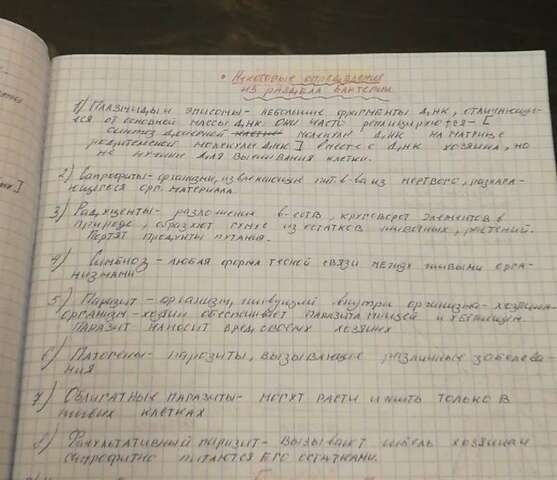 • Некоторые определения
из раздела бактерии.
1) Плазмиды и эписомы - небольшие фрагменты ДНК, отличающие-
ся от основной массы ДНК. Они часто реплицируются - [
синтез дочерней молекулы ДНК на матрице
родительской молекулы ДНК] вместе с ДНК хозяина, но
не нужны для выживания клетки.
2) Сапрофиты - организмы, извлекающие пит. в-ва из мертвого, разлага-
ющегося орг. материала.
3) Редуценты - разложение в-ств, круговорот элементов в
природе, образуют гумус из остатков животных, растений.
Портят продукты питания.
4) Симбиоз - любая форма тесной связи между живыми орга-
низмами
5) Паразит - организм, живущий внутри организма-хозяина
организм-хозяин обеспечивает паразита пищей и жилищем
Паразит наносит вред своему хозяину
6) Патогены - паразиты, вызывающие различные заболева-
ния
7) Облигатные паразиты - могут расти и жить только в
живых клетках
8) Факультативный паразит - вызывают гибель хозяина и
сапрофитно питаются его остатками.